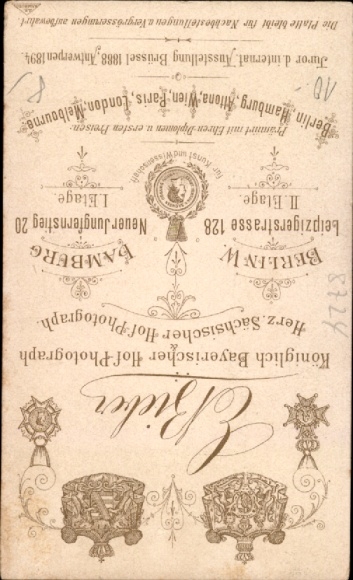 E. Bieber
Königlich Bayerischer Hof-Photograph
&
Herz. Sächsischer Hof-Photograph.
BERLIN W. HAMBURG
Leipzigerstrasse 128 Neuer Jungfernstieg 20
II. Etage. I. Etage.
für Kunst und Wissenschaft
Prämiirt mit Ehren-Diplomen u. ersten Preisen:
Berlin, Hamburg, Altona, Wien, Paris, London, Melbourne
Juror d. internat. Ausstellung Brüssel 1888, Antwerpen 1894.
Die Platte bleibt für Nachbestellungen u. Vergrösserungen aufbewahrt
8724
10
8